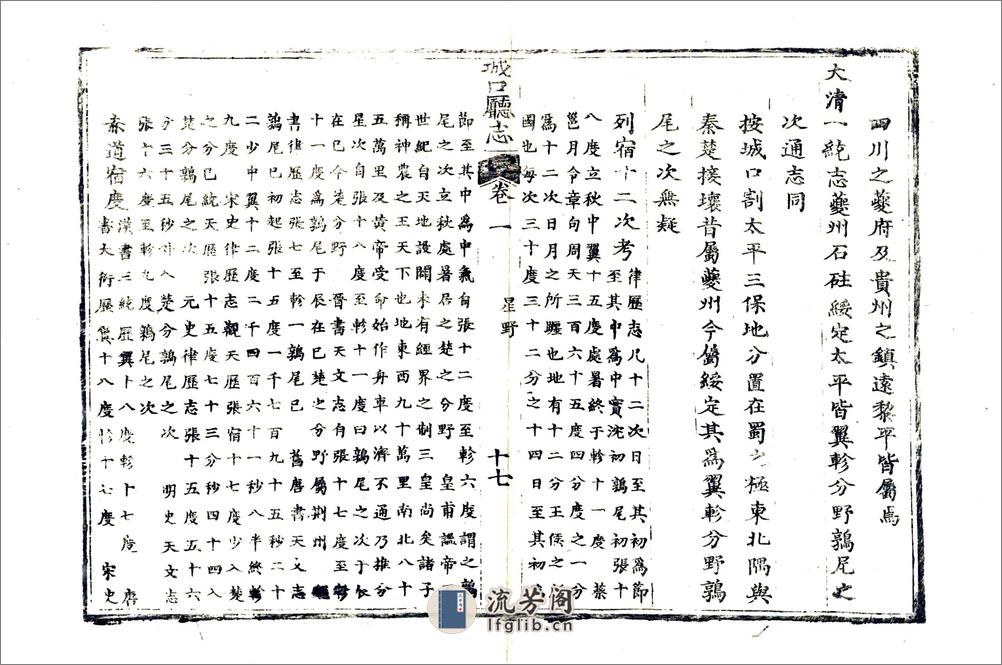 四川之夔府及貴州之鎮遠黎平皆屬焉
大清一統志夔州石砫綏定太平皆翼軫分野鶉尾之
次通志同
按城口割太平三保地分置在蜀之極東北隅與
秦楚接壤昔屬夔州今屬綏定其為翼軫分野鶉
尾之次無疑
列宿十二次考
律歷志凡十二次日至其初為節
至其中為中實沈初鶉尾初張十
八度立秋中翼十五度處暑終于軫十一度 蔡
邕月令章句周天三百六十五度四分度之一分
為十二次日月之所躔也地有十二分王侯之所
國也每次三十度三十二分之十四日至其初為
節至其中為中氣自張十二度至軫六度謂之鶉
尾之次立秋處暑居之楚之分野 皇甫謐帝王
世紀自天地設闢未有經界之制三皇尚矣諸子
稱神農之王天下也地東西九十萬里南北八十
五萬里及黃帝受命始作舟車以濟不通乃推分
星次自張十八度至軫十一度曰鶉尾之次于辰
在巳今楚分野 晉書天文志自張十七度至軫
十一度為鶉尾于辰在巳楚之分野屬荊州
書律歷志張七至軫一鶉尾巳 舊唐書天文志
鶉尾巳初起張十五度一千七百九十五秒二十
二少中翼十二度二千四百六十一秒八半終軫
九度 宋史律歷志觀天歷張宿十七度少入楚
之分巳統天歷張十五度七十三分秒四十四入
楚分鶉尾之次 元史律歷志張十五度五十六
分三十五秒 入楚分鶉尾之次 明史天文志
張十六度至軫九度鶉尾之次
赤道宿度
漢書三統歷翼十八度軫十七度 唐
書大衍歷翼十八度軫十七度 宋史
城口廳志
卷一
星野
十七
流芳阁
lfglib.cn